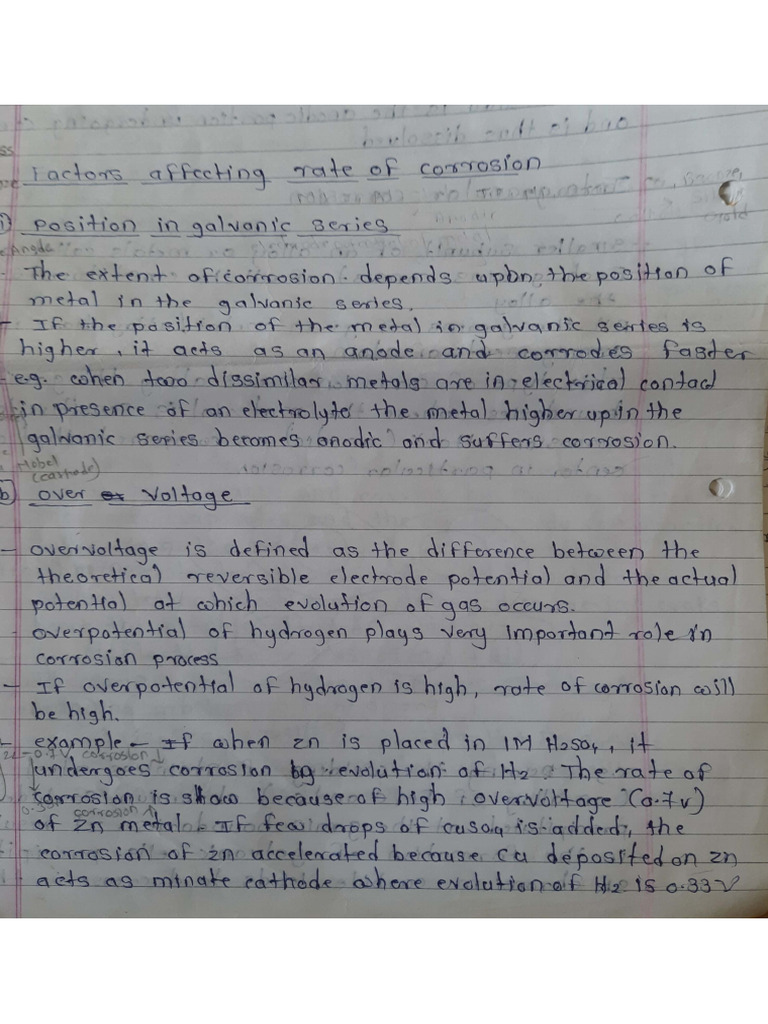 Factors affecting rate of corrosion
Position in galvanic series
- The extent of corrosion depends upon the position of
metal in the galvanic series.
- If the position of the metal in galvanic series is
higher, it acts as an anode and corrodes faster
- e.g. when two dissimilar metals are in electrical contact
in presence of an electrolyte the metal higher up in the
galvanic series becomes anodic and suffers corrosion.
(cathode)
b) over voltage
- overvoltage is defined as the difference between the
theoretical reversible electrode potential and the actual
potential at which evolution of gas occurs.
- overpotential of hydrogen plays very important role in
corrosion process
- If overpotential of hydrogen is high, rate of corrosion will
be high.
- example - If when zn is placed in 1M H2SO4, it
0.7V corrosion ↓
undergoes corrosion by evolution of H2. The rate of
corrosion is slow because of high overvoltage (0.7v)
corrosion ↑
of Zn metal. If few drops of CuSO4 is added, the
corrosion of zn accelerated because Cu deposited on Zn
acts as minate cathode where evolution of H2 is 0.33V